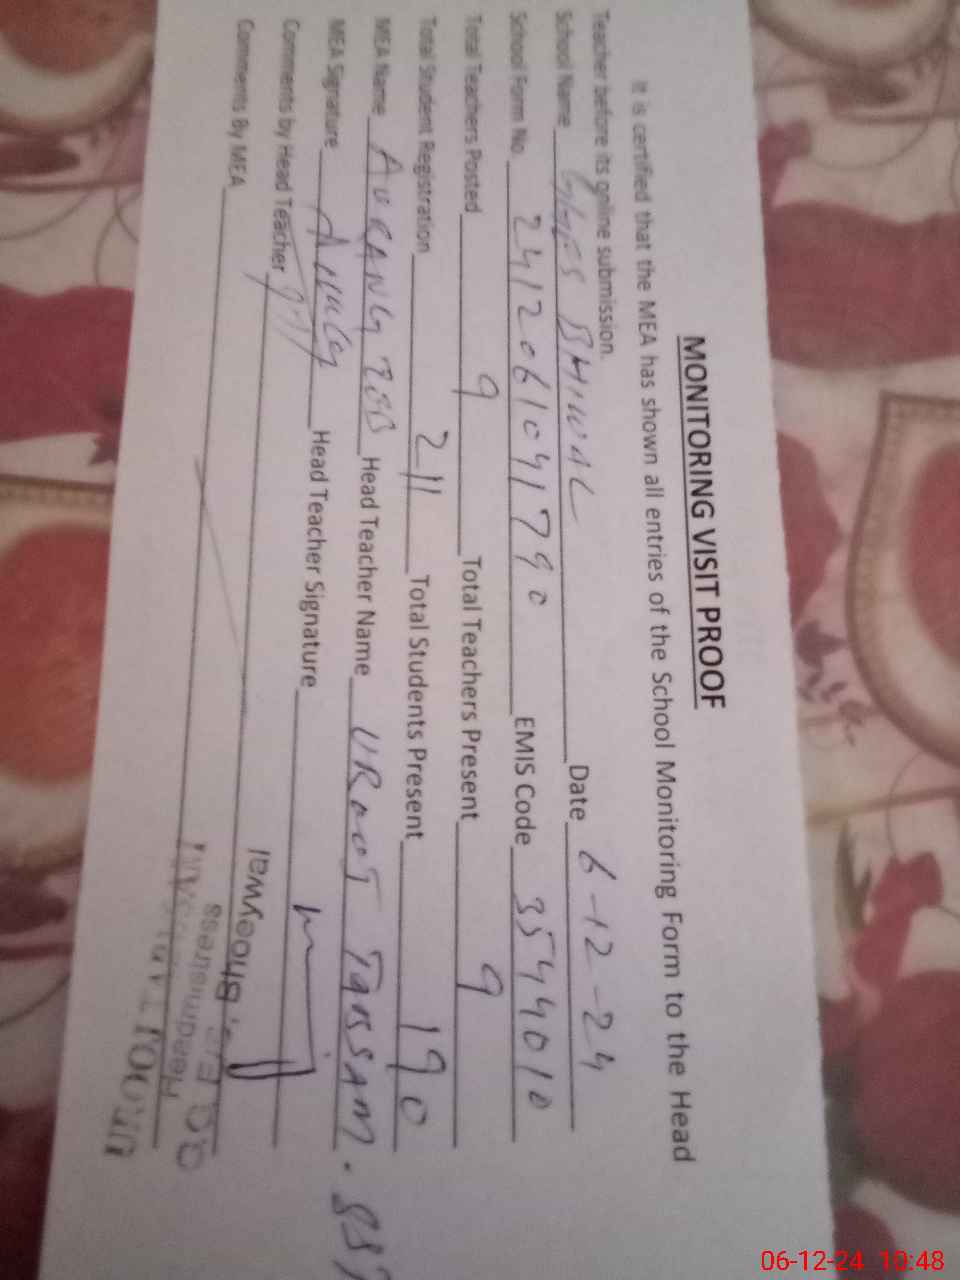 MONITORING VISIT PROOF
It is certified that the MEA has shown all entries of the School Monitoring Form to the Head
Teacher before its online submission.
School Name BHIWAL Date 6-12-24
School Form No 2412061041790 EMIS Code 35440010
Total Teachers Posted 9 Total Teachers Present 9
Total Student Registration 211 Total Students Present 190
MEA Name AURANGZEB Head Teacher Name UROOJ TABSSAM. SST
MEA Signature Head Teacher Signature
Comments by Head Teacher
Comments By MEA
Headmistress
06-12-24 10:48